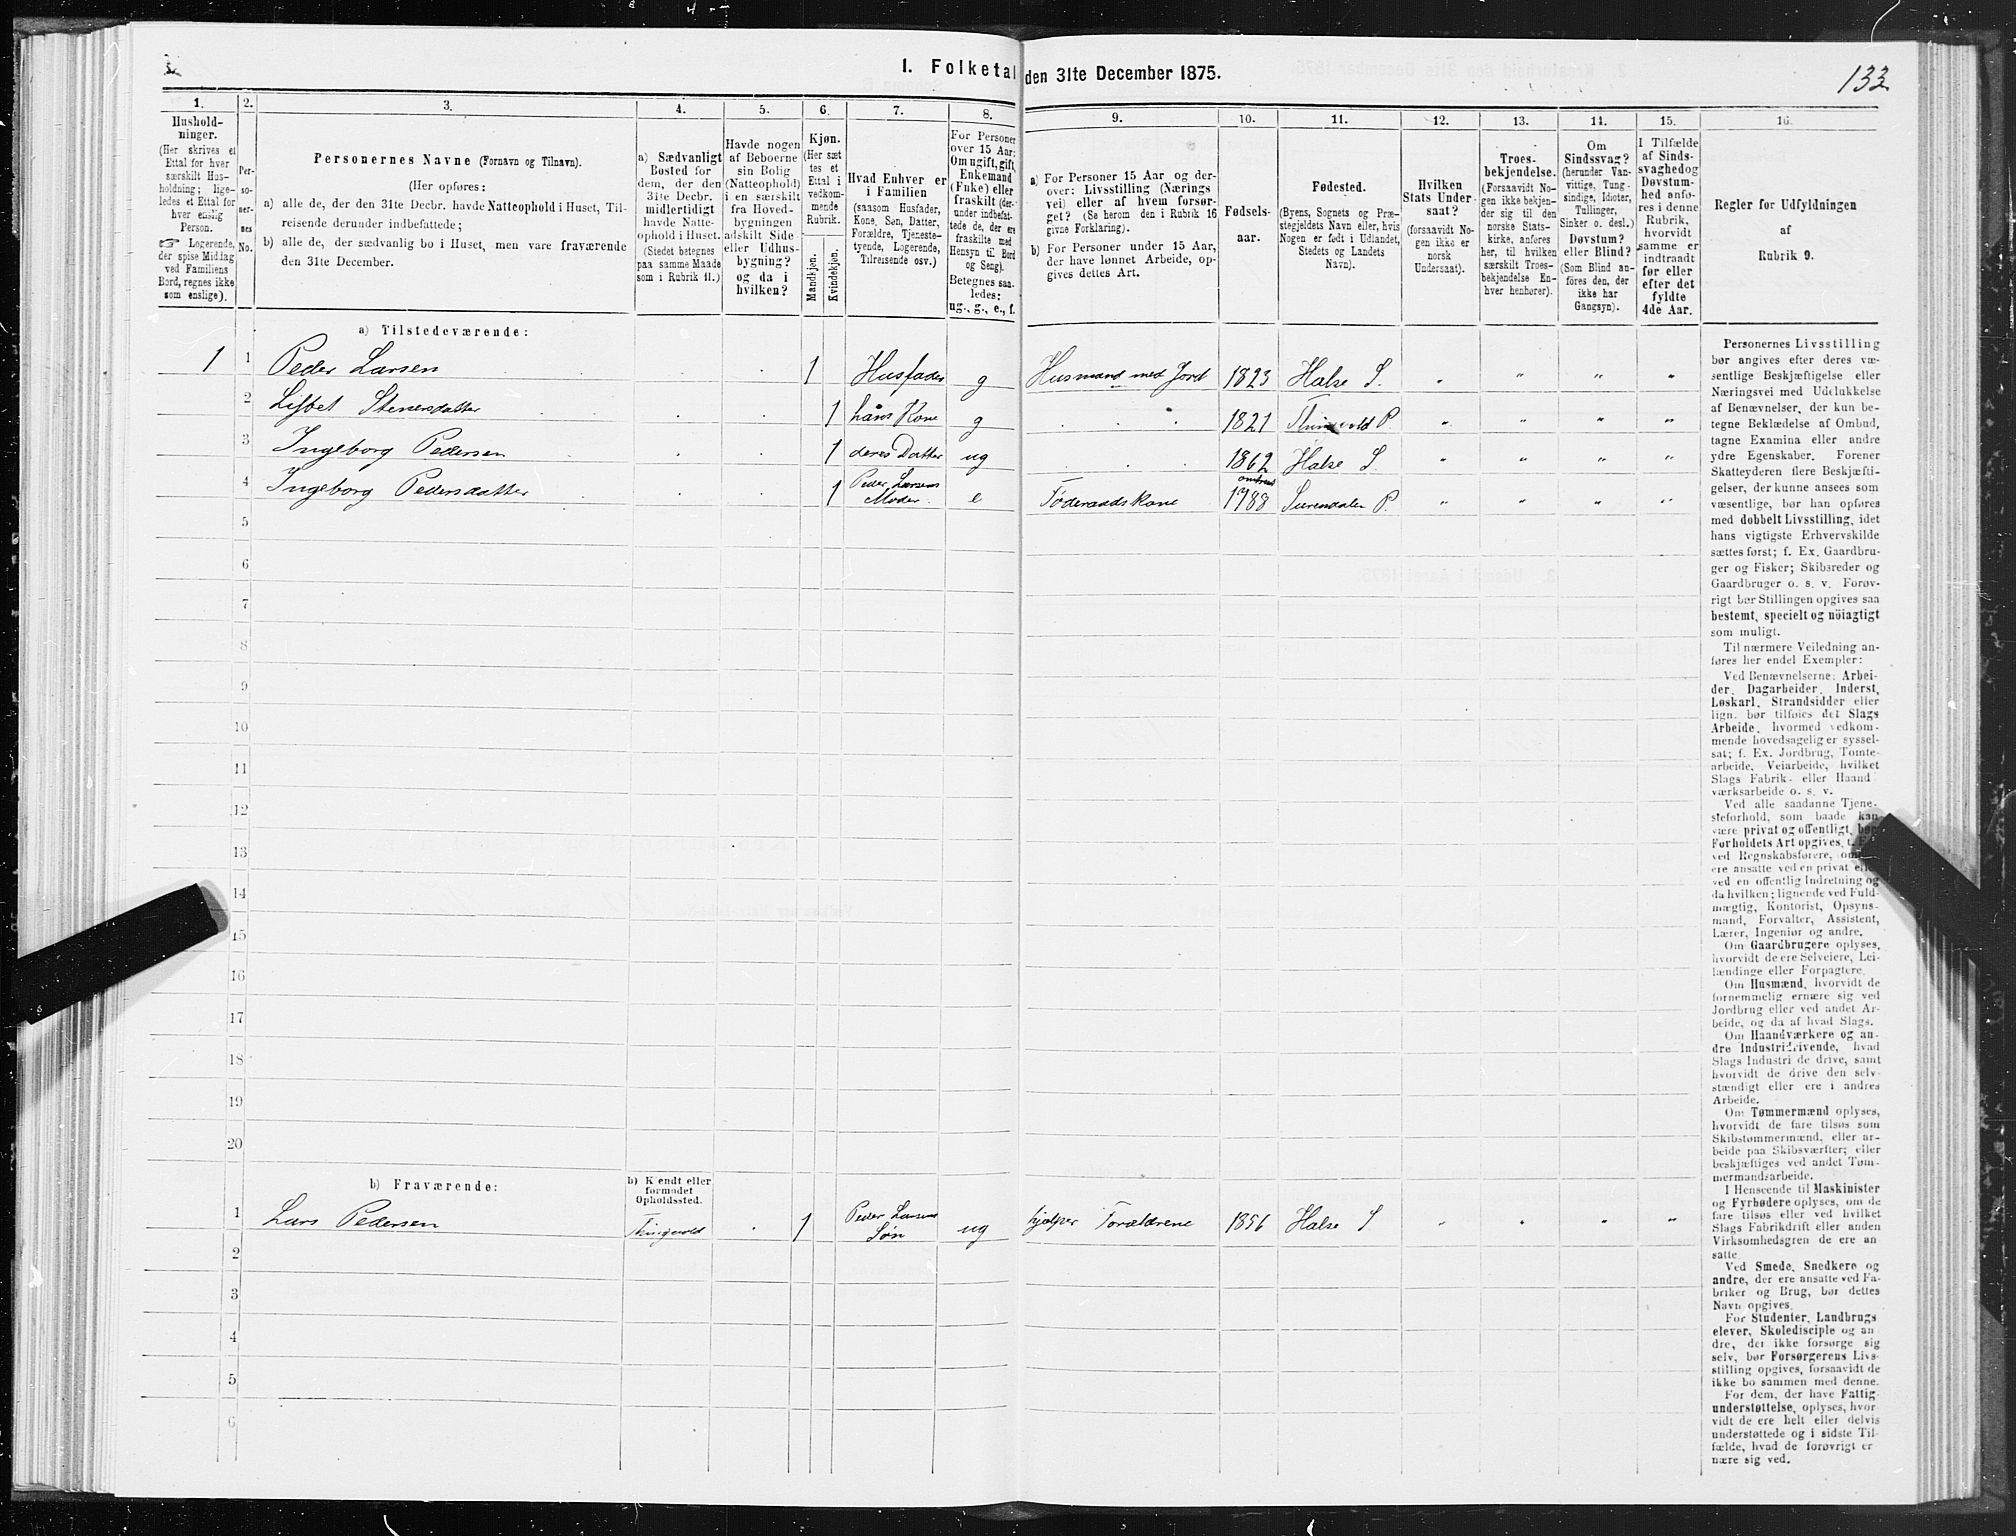 I. Folketal den 31te December 1875.
133
1.
Hushold-
ninger.
(Her skrives et
Ettal for hver
særskilt Hus-
holdning; lige-
ledes et Ettal for
hver enslig
Person.
☞ Logerende,
der spise Middag
ved Familiens
Bord, regnes ikke
som enslige).
2.
Per-
so-
ner-
nes
No.
3.
Personernes Navne (Fornavn og Tilnavn).
(Her opføres:
a) alle de, der den 31te Decbr. havde Natteophold i Huset, Til-
reisende derunder indbefattede;
b) alle de, der sædvanlig bo i Huset, men vare fraværende
den 31te December.
4.
a) Sædvanligt
Bosted for
dem, der den
31te Decbr.
midlertidigt
havde Natte-
ophold i Huset.
(Stedet betegnes
paa samme Maade
som i Rubrik 11.)
5.
Havde nogen
af Beboerne
sin Bolig
(Natteophold)
i en særskilt
fra Hoved-
bygningen
adskilt Side-
eller Udhus-
bygning?
og da i
hvilken?
6.
Kjøn.
(Her sæt
tes et
Ettal i
vedkom-
mende
Rubrik.
Mandkjøn.
Kvindekjøn.
7.
Hvad Enhver er
i Familien
(saasom Husfader,
Kone, Søn, Datter,
Forældre, Tjeneste-
tyende, Logerende,
Tilreisende osv.)
8.
For Personer
over 15 Aar:
Om ugift, gift,
Enkemand
(Enke) eller
fraskilt (der-
under indbefat-
tede de, der ere
fraskilte med
Hensyn til Bord
og Seng).
Betegnes saa-
ledes:
ug., g., e., f.
9.
a) For Personer 15 Aar og der-
over: Livsstilling (Nærings
vei) eller af hvem forsør-
get? (Se herom den i Rubrik 16
givne Forklaring).
b) For Personer under 15 Aar,
der have lønnet Arbeide, op-
gives dettes Art.
10.
Fødsels-
aar.
11.
Fødested.
(Byens, Sognets og Præ-
stegjeldets Navn eller, hvis
Nogen er født i Udlandet,
Stedets og Landets
Navn).
12.
Hvilken
Stats Under-
saat?
(forsaavidt No-
gen ikke er
norsk
Undersaat).
13.
Troes-
bekjendelse.
(Forsaavidt No-
gen ikke bekjen-
der sig til den
norske Stats-
kirke, anføres
her, til hvilken
særskilt Troes-
bekjendelse En-
hver henhører).
14.
Om
Sindssvag?
(herunder Van-
vittige, Tung-
sindige, Idioter,
Tullinger,
Sinker o. desl.)
Døvstum?
eller Blind?
(Som Blind an-
føres den, der
ikke har
Gangsyn).
15.
I Tilfælde
af Sinds-
svaghed og
Døvstum-
hed anfø-
res i denne
Rubrik,
hvorvidt
samme er
indtraadt
før eller
efter det
fyldte
4de Aar.
16.
Regler for Udfyldningen
af
Rubrik 9.
a) Tilstedeværende:
1 1 Peder Larsen 1 Husfader g Husmand med Jord 1823 Halse S. " " " "
2 Lisbet Stenersdatter 1 hans Kone g 1821 Thingvold P. " " " "
3 Ingeborg Pedersen 1 deres Datter ug 1862 Halse S. " " " "
4 Ingeborg Pedersdatter 1 Peder Larsens Moder e Føderaadskone omtrent 1788 Surendalen P. " " " "
5
6
7
8
9
10
11
12
13
14
15
16
17
18
19
20
b) Fraværende:
b) Kjendt eller
formodet
Opholdssted.
1 Lars Pedersen Thingvold 1 Peder Larsens Søn ug hjælper Forældrene 1856 Halse S " " " "
2
3
4
5
6
Personernes Livsstilling
bør angives efter deres væ-
sentlige Beskjæftigelse eller
Næringsvei med Udelukkelse
af Benævnelser, der kun be-
tegne Beklædelse af Ombud,
tagne Examina eller andre
ydre Egenskaber. Forener
Skatteyderen flere Beskjæfti-
gelser, der kunne ansees som
væsentlige, bør han opføres
med dobbelt Livsstilling, idet
hans vigtigste Erhvervskilde
sættes først; f. Ex. Gaardbru-
ger og Fisker; Skibsreder og
Gaardbruger o. s. v. Forøv-
rigt bør Stillingen opgives saa
bestemt, specielt og nöiagtigt
som muligt.
Til nærmere Veiledning an-
føres her endel Exempler:
Ved Benævnelserne: Arbei-
der, Dagarbeider, Inderst,
Løskarl, Strandsidder eller
lign. bør tilføies det Slags
Arbeide, hvormed vedkom-
mende hovedsagelig er syssel-
sat; f. Ex. Jordbrug, Tomte-
arbeide, Veiarbeide, hvilket
Slags Fabrik- eller Haand-
værksarbeide o. s. v.
Ved alle saadanne Tjene-
steforhold, som baade kan
være privat og offentligt, bør
Forholdets Art opgives,
ved Regnskabsførere, om
ere ansatte ved en privat eller
ved en offentlig Indretning og
da hvilken; lignende ved Fuld-
mægtig, Kontorist, Opsyns-
mand, Forvalter, Assistent,
Lærer, Ingeniør og andre.
Om Gaardbrugere oplyses,
hvorvidt de ere Selveiere, Lei-
lændinge eller Forpagtere.
Om Husmænd, hvorvidt de
fornemmelig ernære sig ved
Jordbrug eller ved andet Ar-
beide, og da af hvad Slags.
Om Haandværkere og an-
dre Industridrivende, hvad
Slags Industri de drive, samt
hvorvidt de drive den selv-
stændigt eller ere i andres
Arbeide.
Om Tømmermænd oplyses,
hvorvidt de fare tilsøs som
Skibstømmermænd, eller ar-
beide paa Skibsværfter; eller
beskjæftiges ved andet Tøm-
mermandsarbeide.
I Henseende til Maskinister
og Fyrbødere oplyses, om de
fare tilsøs eller ved hvilket
Slags Fabrikdrift eller anden
Virksomhedsgren de ere an-
satte.
Ved Smede, Snedkere og
andre, der ere ansatte ved Fa-
briker og Brug, bør dettes
Navn opgives.
For Studenter, Landbrugs
elever, Skoledisciple og an-
dre, der ikke forsørge sig
selv, bør Forsørgerens Livs-
stilling opgives, forsaavidt de
ikke bo sammen med denne.
For dem, der have Fattig-
understøttelse, oplyses, hvor-
vidt de ere helt eller delvis
understøttede og i sidste Til-
fælde, hvad de forøvrigt er
nære sig ved.